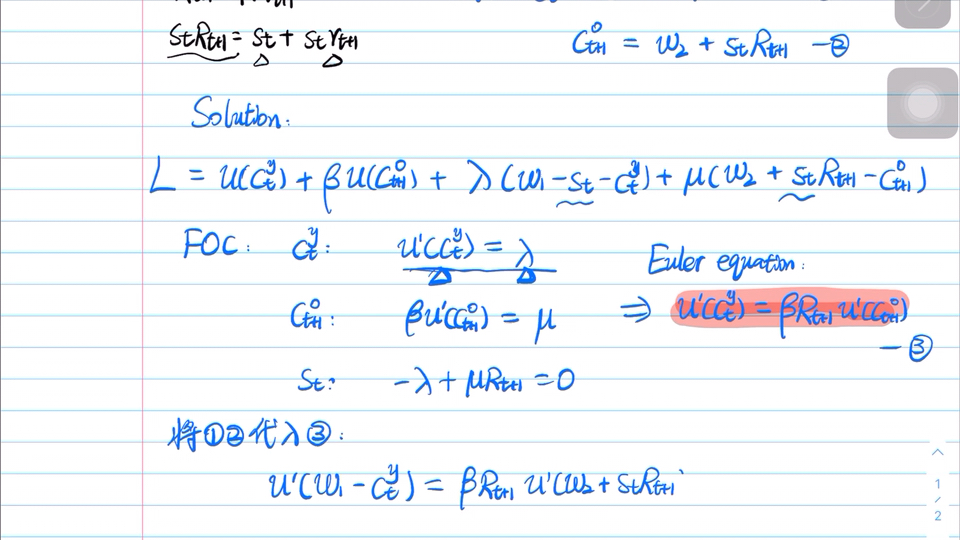 StRt+1 = St + Strt+1
C^o_t+1 = W2 + StRt+1 — ②
Solution:
L = U(C^y_t) + βU(C^o_t+1) + λ(W1 - St - C^y_t) + μ(W2 + StRt+1 - C^o_t+1)
FOC: C^y_t: U'(C^y_t) = λ
Euler equation:
C^o_t+1: βU'(C^o_t+1) = μ ⇒ U'(C^y_t) = βRt+1 U'(C^o_t+1)
— ③
St: -λ + μRt+1 = 0
将①②代入③:
U'(W1 - C^y_t) = βRt+1 U'(W2 + StRt+1
1
/
2